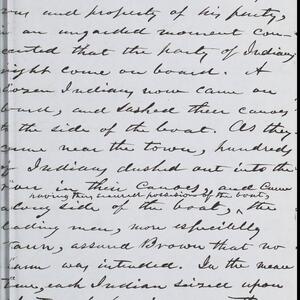 and property of his party,
in an unguarded moment con-
sented that the party of Indians
might come on board. A
dozen Indians now came on
board, and lashed their canoes
to the side of the boat. As they
came near the town, hundreds
of Indians dashed out into the
river in their canoes, and came
along side of the boat, the
leading men, more especially
assured Brown that no
harm was intended. In the mean
time, each Indian seized upon